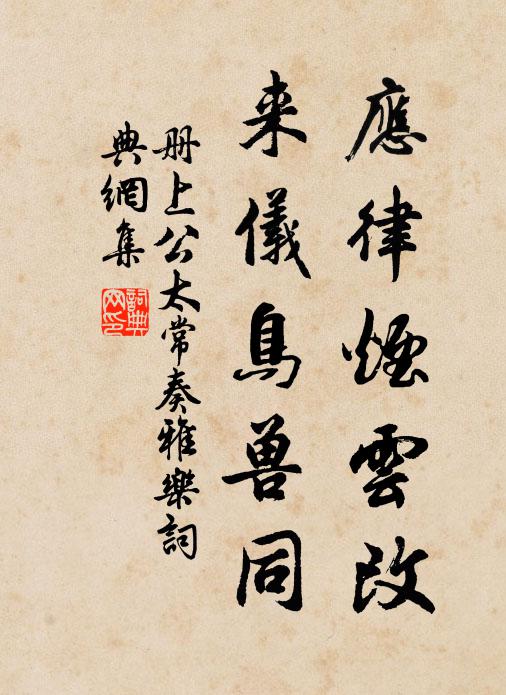 應律煙雲改
来儀鳥獸同
册上公太常奏雅樂詞
典網集
詞典网印